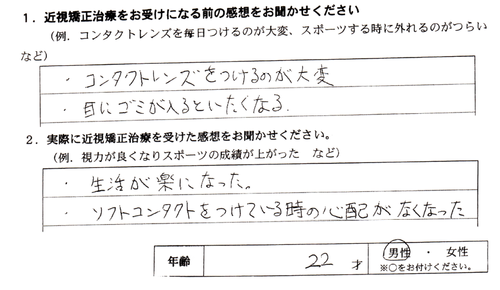 1．近視矯正治療をお受けになる前の感想をお聞かせください
（例．コンタクトレンズを毎日つけるのが大変、スポーツする時に外れるのがつらい
など）
・コンタクトレンズをつけるのが大変
・目にゴミが入るといたくなる.
2．実際に近視矯正治療を受けた感想をお聞かせください。
（例．視力が良くなりスポーツの成績が上がった　など）
・生活が楽になった。
・ソフトコンタクトをつけている時の心配がなくなった
年齢　22才　男性・女性
※○をお付けください。